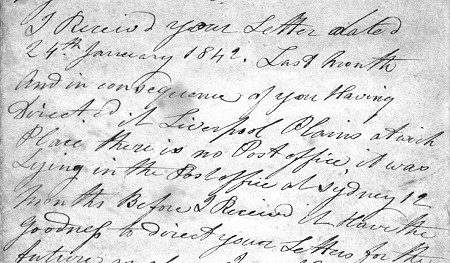 I Received your Letter dated
24th January 1842. Last Month
And in consequence of you Having
Directed it Liverpool Plains at wich
Place there is no Post office it was
Lying in the Post office at Sydney 12
Months Before I Received it Have the
goodness to direct your Letters for the
future